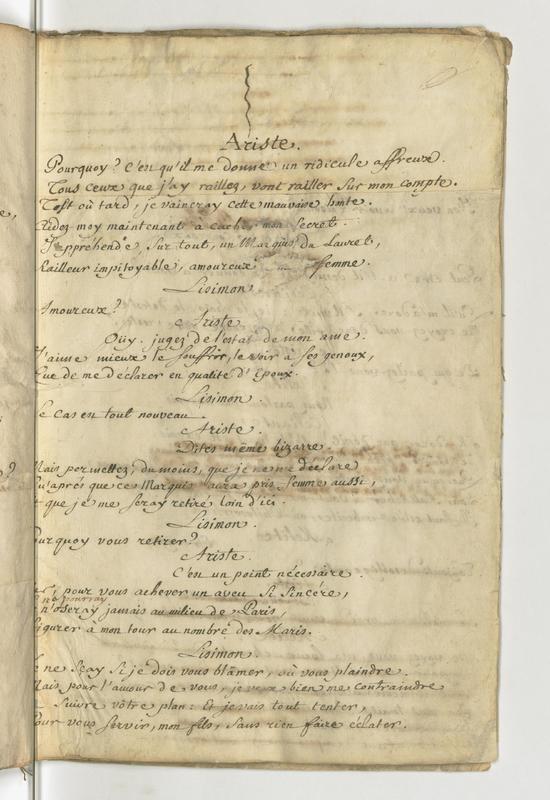 Ariste.
Pourquoy? C'en qu'il me donne un ridicule affreux.
Tous ceux que j'ay raillez, vont railler sur mon compte.
Tost où tard, je vaincray cette mauvaise honte.
Aidez moy maintenant à cacher mon secret.
J'appréhende, sur tout, un Marquis du Lauret,
Railleur impitoyable, amoureux femme.
Lisimon
Amoureux?
Ariste
Oüy. jugez de l'estat de mon ame.
J'aime mieux le souffrir, le voir à ses genoux,
Que de me déclarer en qualité d'Epoux.
Lisimon.
Le cas en tout nouveau.
Ariste.
Dites même bizarre.
Mais permettez, du moins, que je ne me déclare
Qu'aprés que ce Marquis aura pris femme aussi,
que je me seray retiré loin d'ici.
Lisimon.
ourquoy vous retirer?
Ariste.
C'en un point nécessaire.
pour vous achever un aveu si sincere,
pourray
n'oseray jamais au milieu de Paris,
figurer à mon tour au nombre des Maris.
Lisimon.
Je ne sçay si je dois vous blâmer, où vous plaindre.
Mais pour l'amour de vous, je veux bien me contraindre
suivre vôtre plan: Et je vais tout tenter,
Pour vous servir, mon fils, sans rien faire éclater.